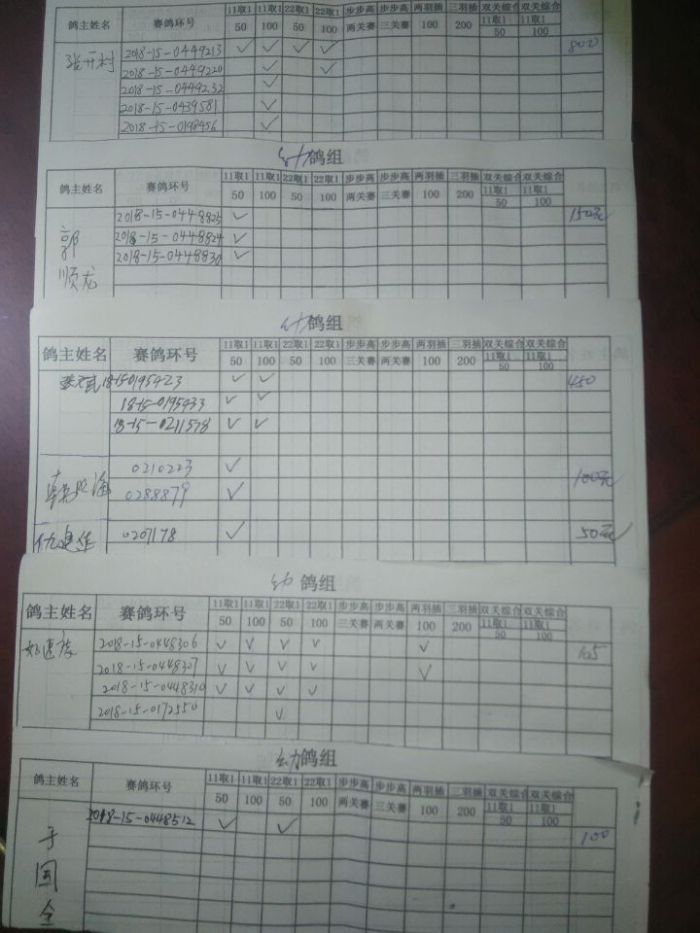 11取1 11取1 22取1 22取1 步步高 步步高 两羽插 三羽插 双关综合 双关综合
鸽主姓名 赛鸽环号 50 100 50 100 两关赛 三关赛 100 200 11取1 50 11取1 100
张开村 2018-15-0449213 ✓ ✓ ✓ ✓ 800
2018-15-0449220 ✓ ✓
2018-15-0449232 ✓
2018-15-0439581 ✓
2018-15-0198456 ✓
幼鸽组
鸽主姓名 赛鸽环号 11取1 11取1 22取1 22取1 步步高 步步高 两羽插 三羽插 双关综合 双关综合
50 100 50 100 两关赛 三关赛 100 200 11取1 50 11取1 100
郭顺龙 2018-15-0448825 ✓ 150元
2018-15-0448824 ✓
2018-15-0448830 ✓
幼鸽组
鸽主姓名 赛鸽环号 11取1 11取1 22取1 22取1 步步高 步步高 两羽插 三羽插 双关综合 双关综合
50 100 50 100 三关赛 两关赛 100 200 11取1 50 11取1 100
18-15-0195423 ✓ ✓ 450
18-15-0195433 ✓ ✓
18-15-0211578 ✓ ✓
0210223 ✓ 100元
0288879 ✓
0207178 ✓ 50元
幼鸽组
鸽主姓名 赛鸽环号 11取1 11取1 22取1 22取1 步步高 步步高 两羽插 三羽插 双关综合 双关综合
50 100 50 100 三关赛 两关赛 100 200 11取1 50 11取1 100
2018-15-0448306 ✓ ✓ ✓ ✓ ✓
2018-15-0448307 ✓ ✓ ✓ ✓ ✓
2018-15-0448310 ✓ ✓ ✓ ✓
2018-15-0172550 ✓
幼鸽组
鸽主姓名 赛鸽环号 11取1 11取1 22取1 22取1 步步高 步步高 两羽插 三羽插 双关综合 双关综合
50 100 50 100 两关赛 三关赛 100 200 11取1 50 11取1 100
于国全 2018-15-0448512 ✓ ✓ 100